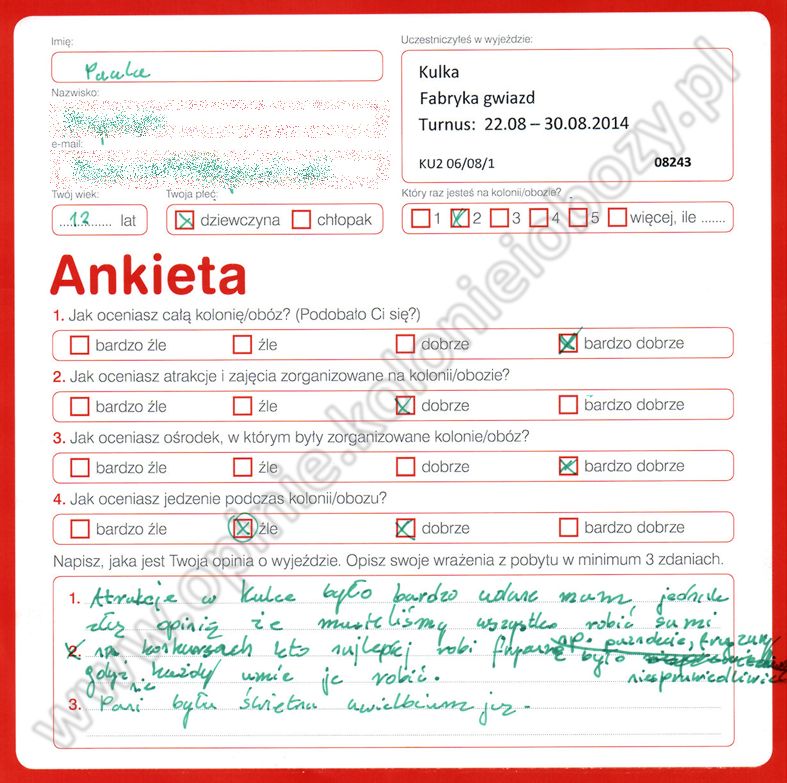 Imię:
Paula
Nazwisko:
e-mail:
Twój wiek:
12 lat
Twoja płeć:
dziewczyna chłopak
Uczestniczyłeś w wyjeździe:
Kulka
Fabryka gwiazd
Turnus: 22.08 – 30.08.2014
KU2 06/08/1 08243
Który raz jesteś na kolonii/obozie?
1 2 3 4 5 więcej, ile .......
Ankieta
1. Jak oceniasz całą kolonię/obóz? (Podobało Ci się?)
bardzo źle źle dobrze bardzo dobrze
2. Jak oceniasz atrakcje i zajęcia zorganizowane na kolonii/obozie?
bardzo źle źle dobrze bardzo dobrze
3. Jak oceniasz ośrodek, w którym były zorganizowane kolonie/obóz?
bardzo źle źle dobrze bardzo dobrze
4. Jak oceniasz jedzenie podczas kolonii/obozu?
bardzo źle źle dobrze bardzo dobrze
Napisz, jaka jest Twoja opinia o wyjeździe. Opisz swoje wrażenia z pobytu w minimum 3 zdaniach.
1. Atrakcje w Kulce było bardzo udane mam jednak
złą opinię że musieliśmy wszystko robić sami
2. na konkursach kto najlepiej robi np. paznokcie, fryzury
było niesprawiedliwie
gdyż nie każdy umie je robić.
3. Pani była świetna uwielbiam ją.
www.opinie.kolonieiobozy.pl